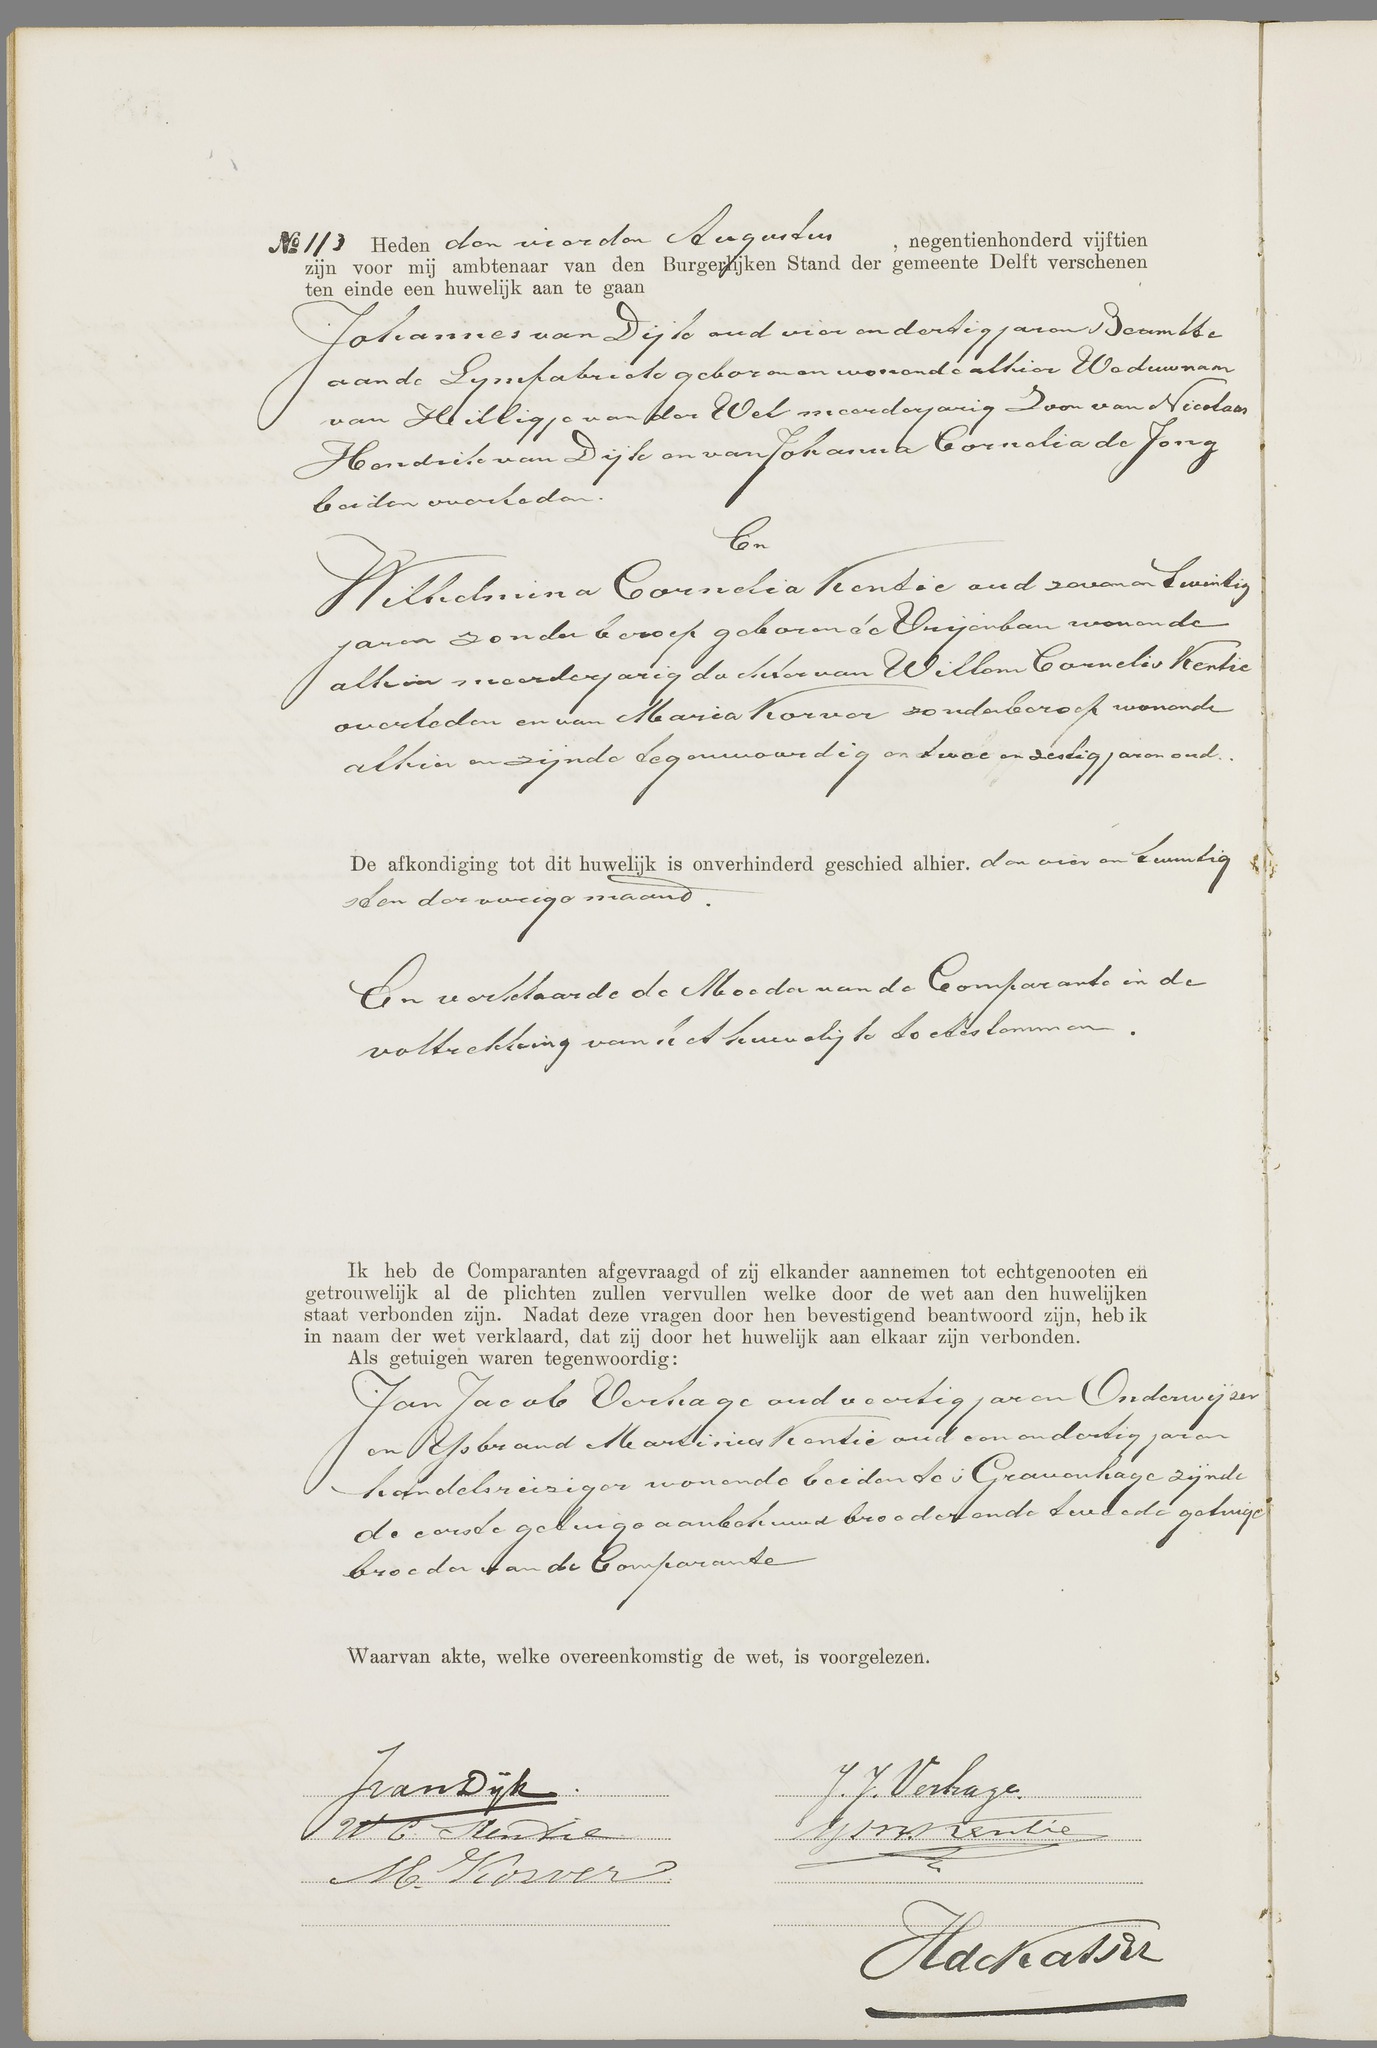 № 113 Heden den vierden Augustus, negentienhonderd vijftien
zijn voor mij ambtenaar van den Burgerlijken Stand der gemeente Delft verschenen
ten einde een huwelijk aan te gaan
Johannes van Dijk oud vier en dertig jaren Beambte
aan de Lymfabriek geboren en wonende alhier Weduwnaar
van Hilligje van der Wel meerderjarig Zoon van Nicolaas
Hendrik van Dijk en van Johanna Cornelia de Jong
beiden overleden.
En
Wilhelmina Cornelia Kentie oud zeven en twintig
jaren zonder beroep geboren te Vrijenban wonende
alhier meerderjarig dochter van Willem Cornelis Kentie
overleden en van Maria Korver zonder beroep wonende
alhier en zijnde tegenwoordig en twee en zestig jaren oud.
De afkondiging tot dit huwelijk is onverhinderd geschied alhier. den vier en twintig
sten der vorige maand.
En verklaarde de Moeder van de Comparante in de
voltrekking van het huwelijk toetestemmen.
Ik heb de Comparanten afgevraagd of zij elkander aannemen tot echtgenooten en
getrouwelijk al de plichten zullen vervullen welke door de wet aan den huwelijken
staat verbonden zijn. Nadat deze vragen door hen bevestigend beantwoord zijn, heb ik
in naam der wet verklaard, dat zij door het huwelijk aan elkaar zijn verbonden.
Als getuigen waren tegenwoordig:
Jan Jacob Verhage oud veertig jaren Onderwijzer
en IJsbrand Martinus Kentie oud een en dertig jaren
handelsreiziger wonende beiden te 's Gravenhage zijnde
de eerste getuige aanbehuwd broeder en de tweede getuige
broeder van de Comparante
Waarvan akte, welke overeenkomstig de wet, is voorgelezen.
J van Dijk.
J. J. Verhage.
W C. Kentie
IJ M. Kentie
M. Korver